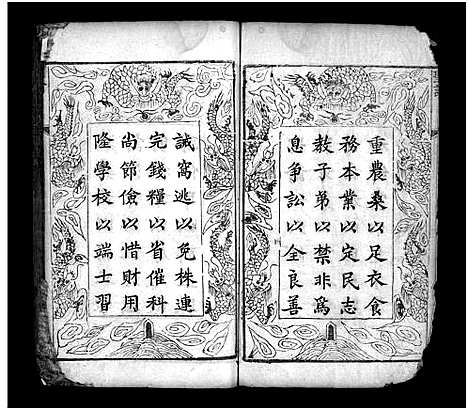 重農桑以足衣食
務本業以定民志
教子弟以禁非為
息争訟以全良善
誡窩逃以免株連
完錢糧以省催科
尚節儉以惜財用
隆學校以端士習